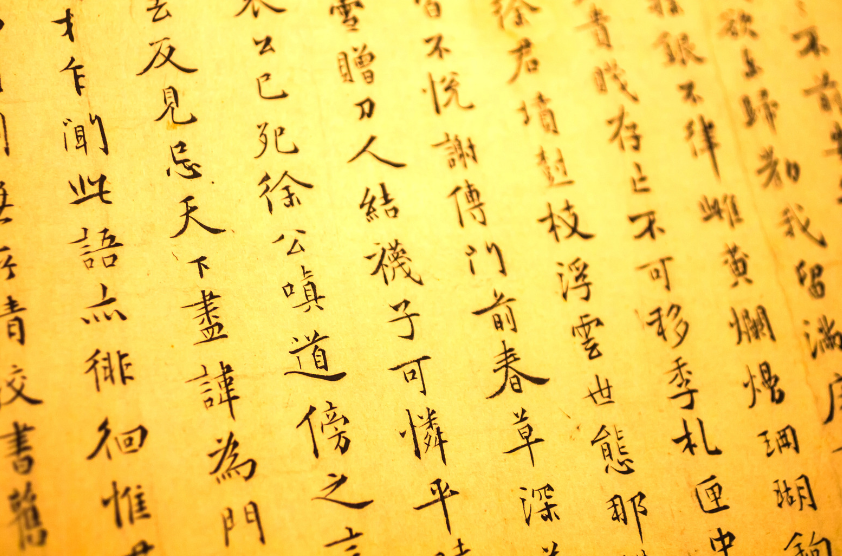 不前
欲去歸勸我留滿
銀不律雌黃爛熳珊瑚鉤
貴賤存亡不可移季札匣中
徐君墳樹枝浮雲世態那
不悅謝傅門前春草深
雪贈刀人結襪子可憐平
公已死徐公嗔道傍之言
反見忌天下盡諱為門
才乍聞此語亦徘徊惟
青校書舊